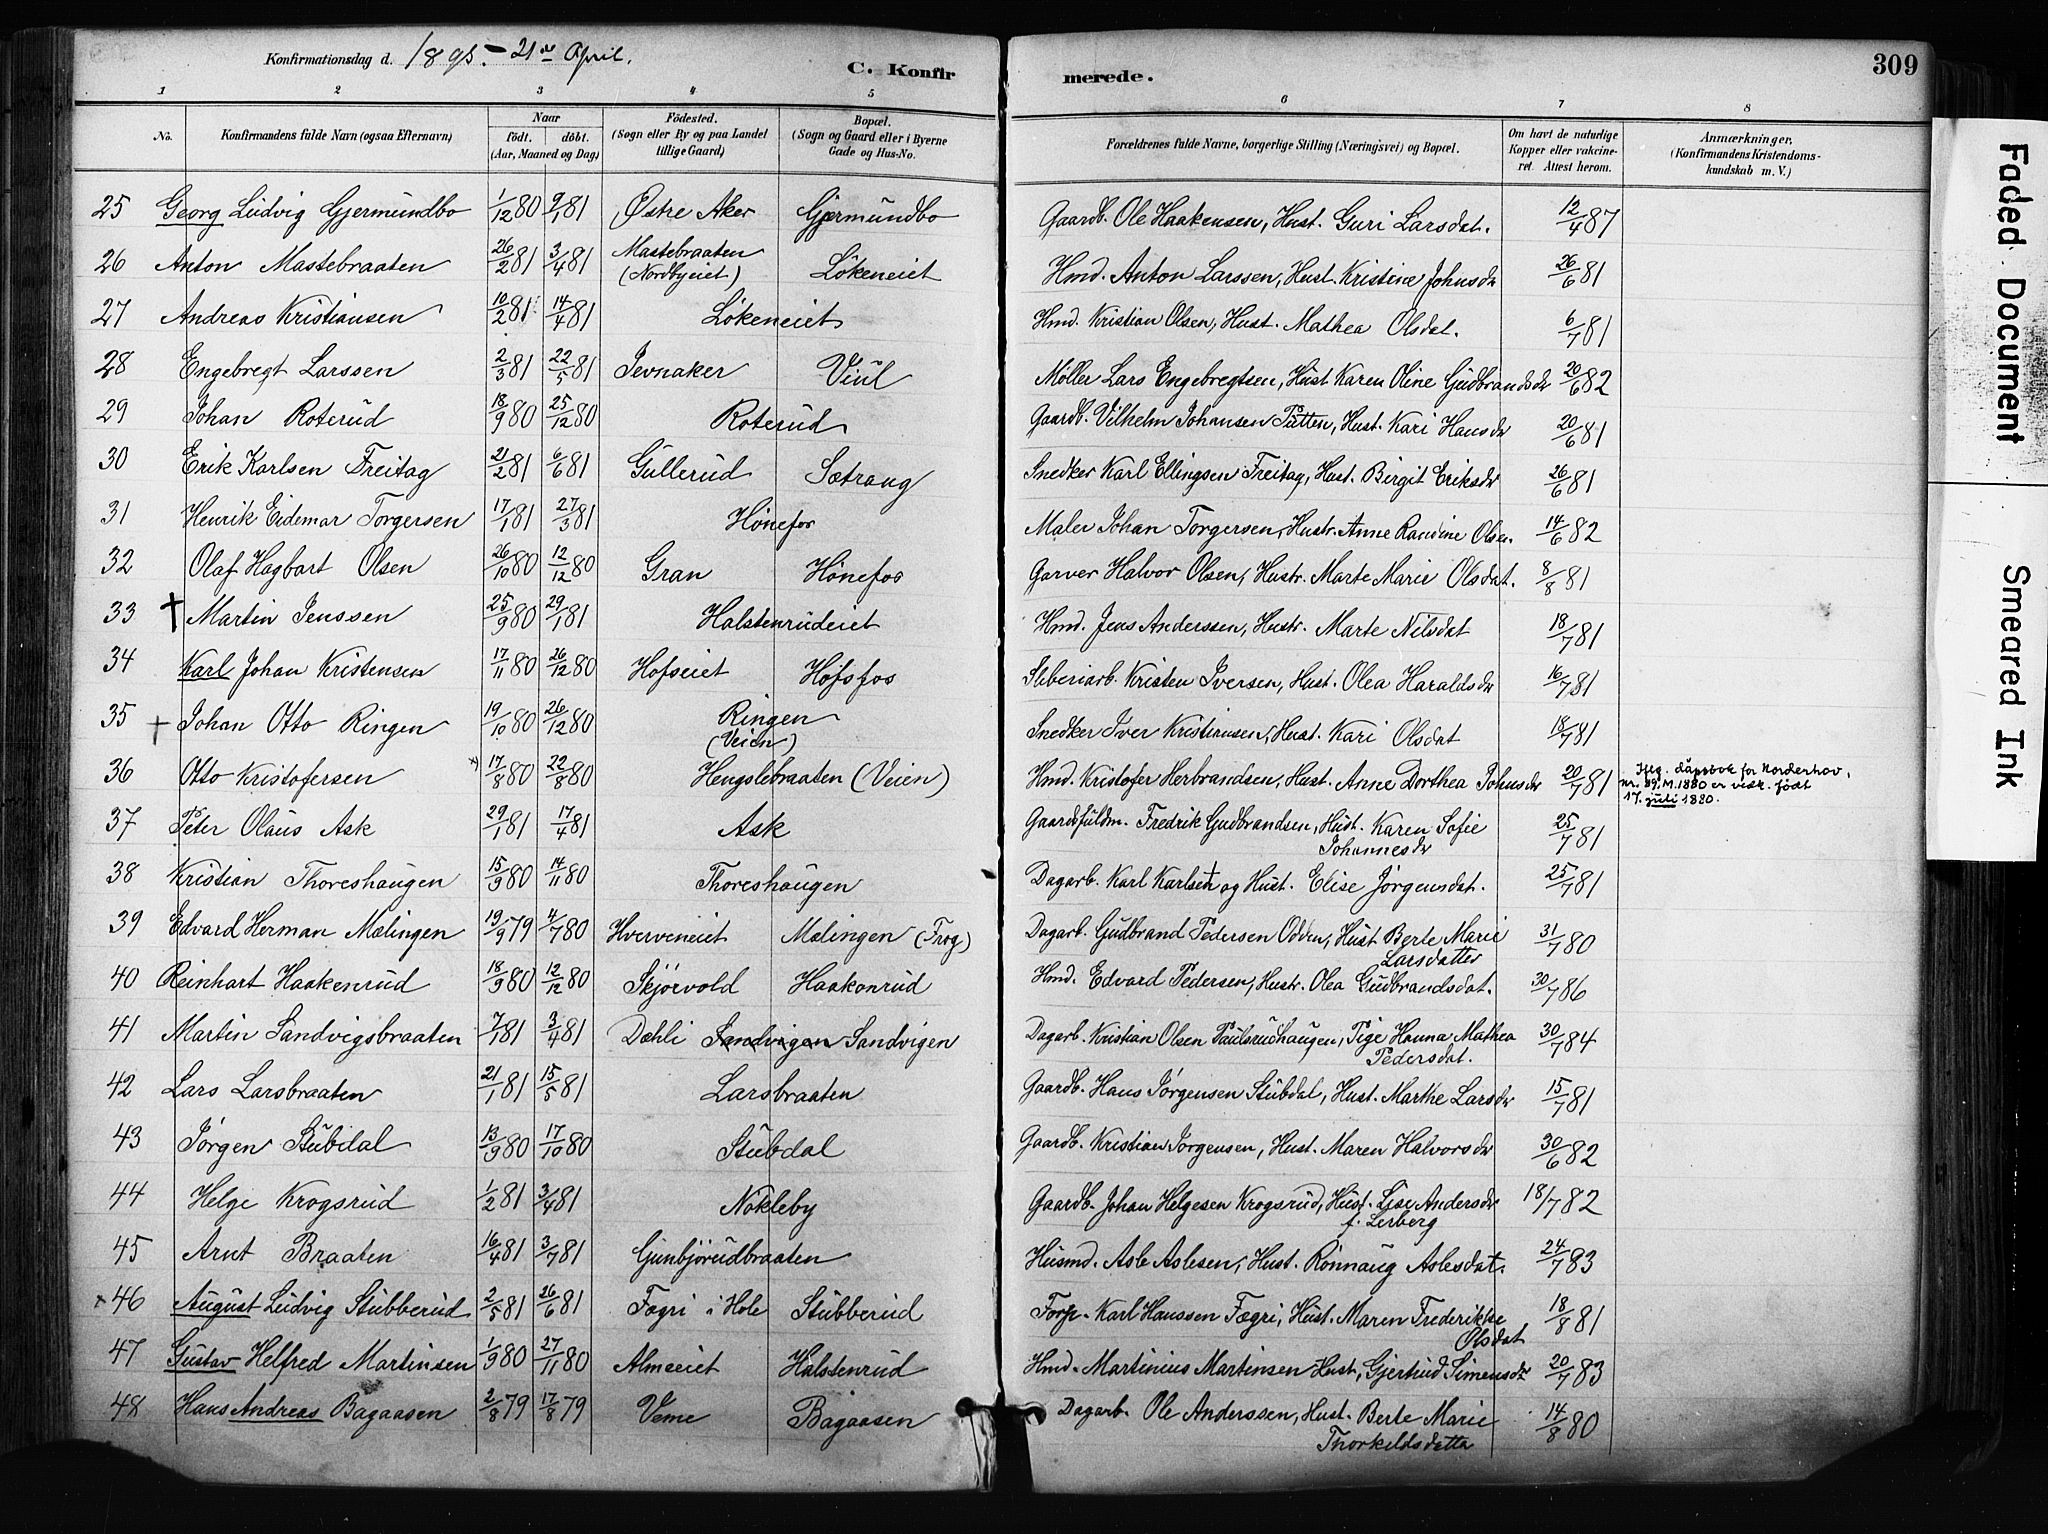 Konfirmationsdag d. 1895. - 21de April.
C. Konfirmerede.
309
1 2 3 4 5 6 7 8
No. Konfirmandens fulde Navn (ogsaa Efternavn) Naar født. døbt. (Aar, Maaned og Dag) Fødested. (Sogn eller By og paa Landet tillige Gaard) Bopæl. (Sogn og Gaard eller i Byerne Gade og Hus-No. Forældrenes fulde Navne, borgerlige Stilling (Næringsvei) og Bopæl. Om havt de naturlige Kopper eller vakcineret. Attest herom. Anmærkninger, (Konfirmandens Kristendomskundskab m. V.)
25 Georg Ludvig Gjermundbo 1/12 80 9/1 81 Østre Aker Gjermundbo Gaardb. Ole Haakensen, Hust. Guri Larsdat. 12/4 87
26 Anton Mastebraaten 26/2 81 3/4 81 Mastebraaten (Nordbyeiet) Løkeneiet Hmd. Anton Larssen, Hust. Kristine Johnsdr 26/6 81
27 Andreas Kristiansen 10/2 81 14/4 81 Løkeneiet Hmd. Kristian Olsen, Hust. Mathea Olsdat. 6/7 81
28 Engebregt Larssen 2/3 81 22/5 81 Jevnaker Viul Møller Lars Engebregtsen, Hust Karen Oline Gudbrandsdr 20/6 82
29 Johan Roterud 18/9 80 25/12 80 Roterud Gaardb. Vilhelm Johansen Putten, Hust. Kari Hansdr 20/6 81
30 Erik Karlsen Freitag 21/2 81 6/6 81 Gullerud Sætrang Snedker Karl Ellingsen Freitag, Hust. Birgit Eriksdr 26/6 81
31 Henrik Eidemar Torgersen 17/1 81 27/3 81 Hønefos Maler Johan Torgersen, Hustr. Anne Randine Olsen. 14/6 82
32 Olaf Hagbart Olsen 26/10 80 12/12 80 Gran Hønefos Garver Halvor Olsen, Hustr. Marte Marie Olsdat. 8/8 81
33 † Martin Jenssen 25/9 80 29/1 81 Halstenrudeiet Hmd. Jens Anderssen, Hustr. Marte Nilsdat 18/7 81
34 Karl Johan Kristensen 17/11 80 26/12 80 Hofseiet Hofsfos Sliberiarb. Kristen Iversen, Hust. Olea Haraldsdr 16/7 81
35 † Johan Otto Ringen 19/10 80 26/12 80 Ringen (Veien) Snedker Iver Kristiansen, Hust. Kari Olsdat 18/7 81
36 Otto Kristofersen *) 17/8 80 22/8 80 Hengslebraaten (Veien) Hmd. Kristofer Herbrandsen, Hust. Anne Dorthea Johnsdr 20/7 81 Iflg. dåpsbok for Norderhov, nr. 89. M. 1880 er vedk. født 17. juli 1880.
37 Peter Olaus Ask 29/1 81 17/4 81 Ask Gaardsfuldm. Fredrik Gudbrandsen, Hust. Karen Sofie Johannesdr 25/7 81
38 Kristian Thoreshaugen 15/9 80 14/11 80 Thoreshaugen Dagarb. Karl Karlsen† og Hust. Elise Jørgensdat. 25/7 81
39 Edvard Herman Mælingen 19/9 79 4/7 80 Hverveneiet Mælingen (Frog) Dagarb. Gudbrand Pedersen Odden, Hust. Berte Marie Larsdatter 31/7 80
40 Reinhart Haakenrud 18/9 80 12/12 80 Skjørvold Haakonrud Hmd. Edvard Pedersen, Hustr. Olea Gudbrandsdat. 30/7 86
41 Martin Sandvigsbraaten 7/1 81 3/4 81 Dæhli Sandvigen Sandvigen Dagarb. Kristian Olsen Paulsrudhaugen, Pige Hanna Mathea Pedersdat. 30/7 84
42 Lars Larsbraaten 21/1 81 15/5 81 Larsbraaten Gaardb. Hans Jørgensen Stubdal, Hust. Marthe Larsdr 15/7 81
43 Jørgen Stubdal 13/9 80 17/10 80 Stubdal Gaardb. Kristian Jørgensen, Hust. Maren Halvorsdr 30/6 82
44 Helge Krogsrud 1/2 81 3/4 81 Nøkleby Gaardb. Johan Helgesen Krogsrud, Hust. Lise Andersdr f. Lerberg 18/7 82
45 Arnt Braaten 16/4 81 3/7 81 Gunbjørudbraaten Husmd. Asle Aslesen, Hust. Rønnaug Aslesdat. 24/7 83
46 August Ludvig Stubberud 2/5 81 26/6 81 Fægri i Hole Stubberud Forp. Karl Hanssen Fægri, Hust. Maren Frederikke Olsdat 18/8 81
47 Gustav Helfred Martinsen 1/9 80 27/11 80 Almeeiet Halstenrud Hmd. Martinius Martinsen Hust, Gjertrud Simensdr 20/7 83
48 Hans Andreas Bagaasen 2/8 79 17/8 79 Veme Bagaasen Dagarb. Ole Anderssen, Hust. Berte Marie Thorkildsdatte 14/8 80
Faded Document
Smeared Ink